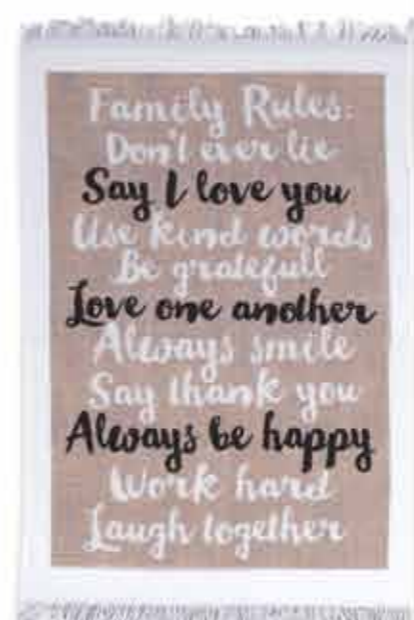 Family Rules:
Don't ever lie
Say I love you
Use kind words
Be gratefull
Love one another
Always smile
Say thank you
Always be happy
Work hard
Laugh together